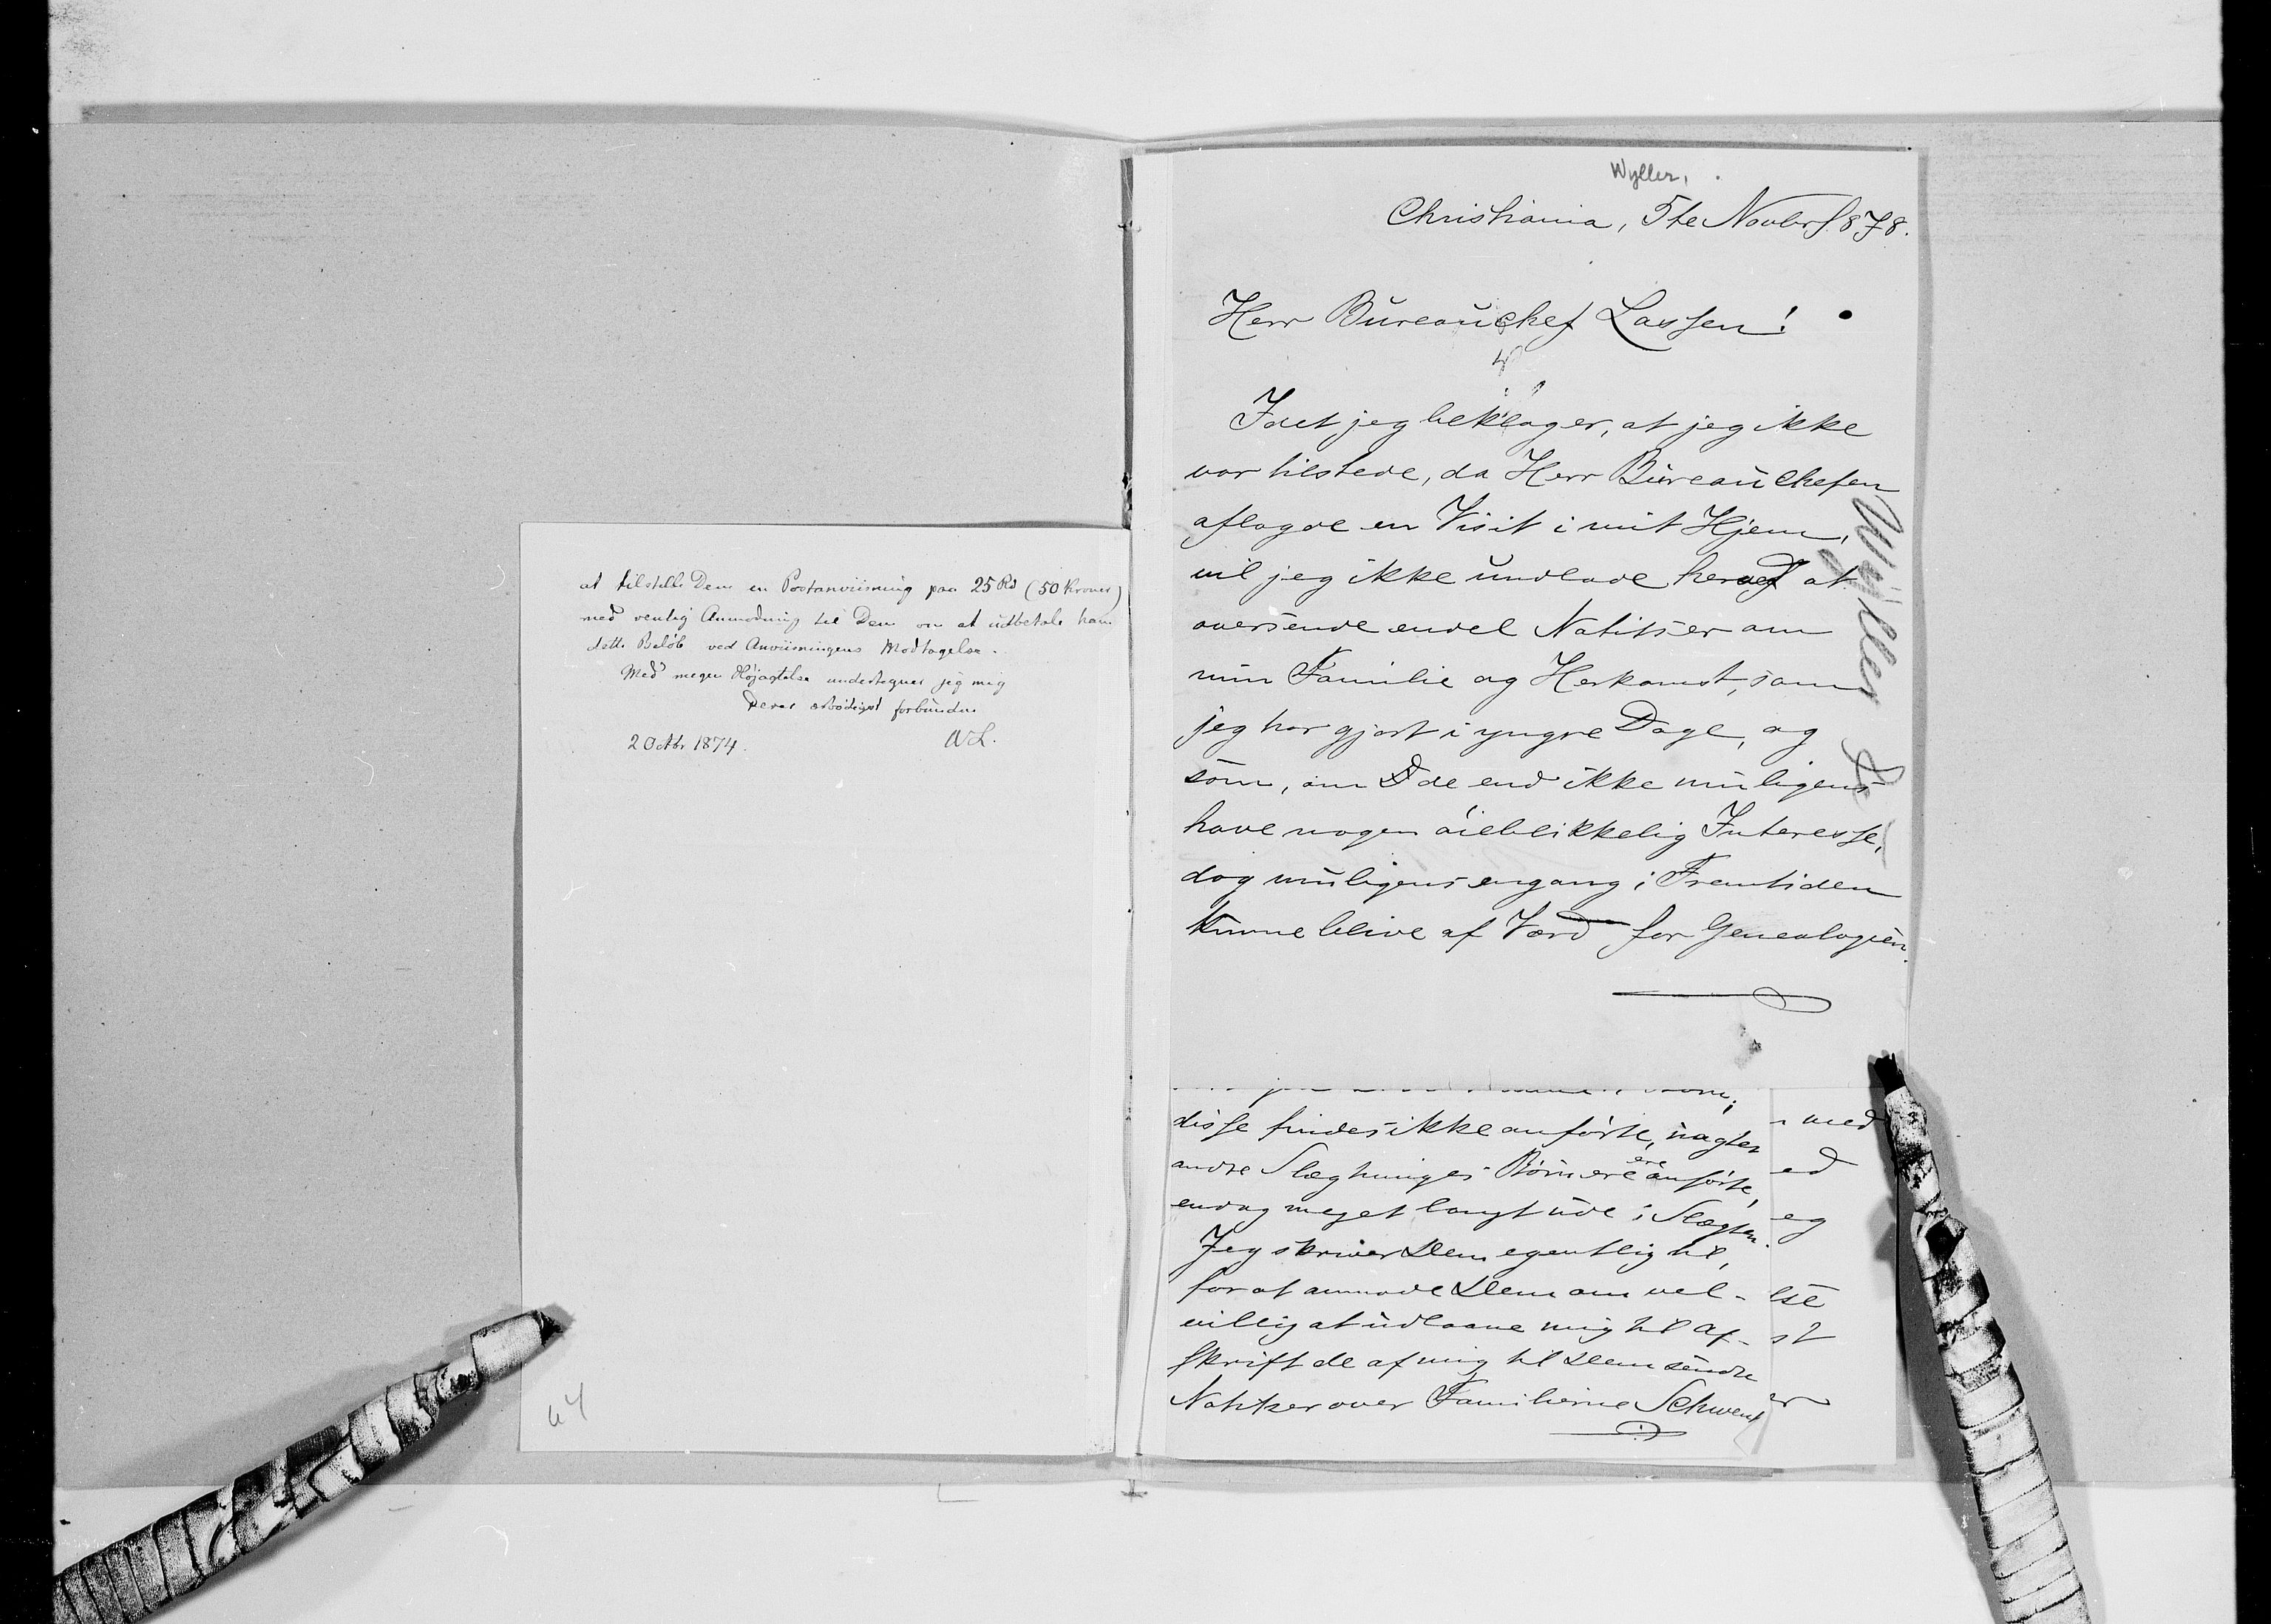 at tilstille Dem en Postanviisning paa 25 Rd (50 Kroner)
med venlig Anmodning til Dem om at udbetale ham
dette Beløb ved Anviisningens Modtagelse.
Med megen Højagtelse undertegner jeg mig
Deres ærbödigst forbundne
2 Octbr 1874.
64
Wyller.
Christiania, 5te Novbr 1878.
Herr Bureauchef Lassen!
Idet jeg beklager, at jeg ikke
var tilstede, da Herr Bureauchefen
aflagde en Visit i mit Hjem,
vil jeg ikke undlade herved at
oversende endel Notitser om
min Familie og Herkomst, som
jeg har gjort i yngre Dage, og
som, om de end ikke muligens
have nogen öieblikkelig Interesse,
dog muligens engang i Fremtiden
kunne blive af Værd for Genealogien.
Wyller
disse findes ikke anförte, uagtet
andre Slægtninges Börn ere anförte,
endog meget langt ude i Slægten.
Jeg skriver Dem egentlig til,
for at anmode Dem om vel-
villig at udlaane mig til Af-
skrift de af mig til Dem sendte
Notitser over Familierne Schwenf
med
ed
eg
lse
st
er